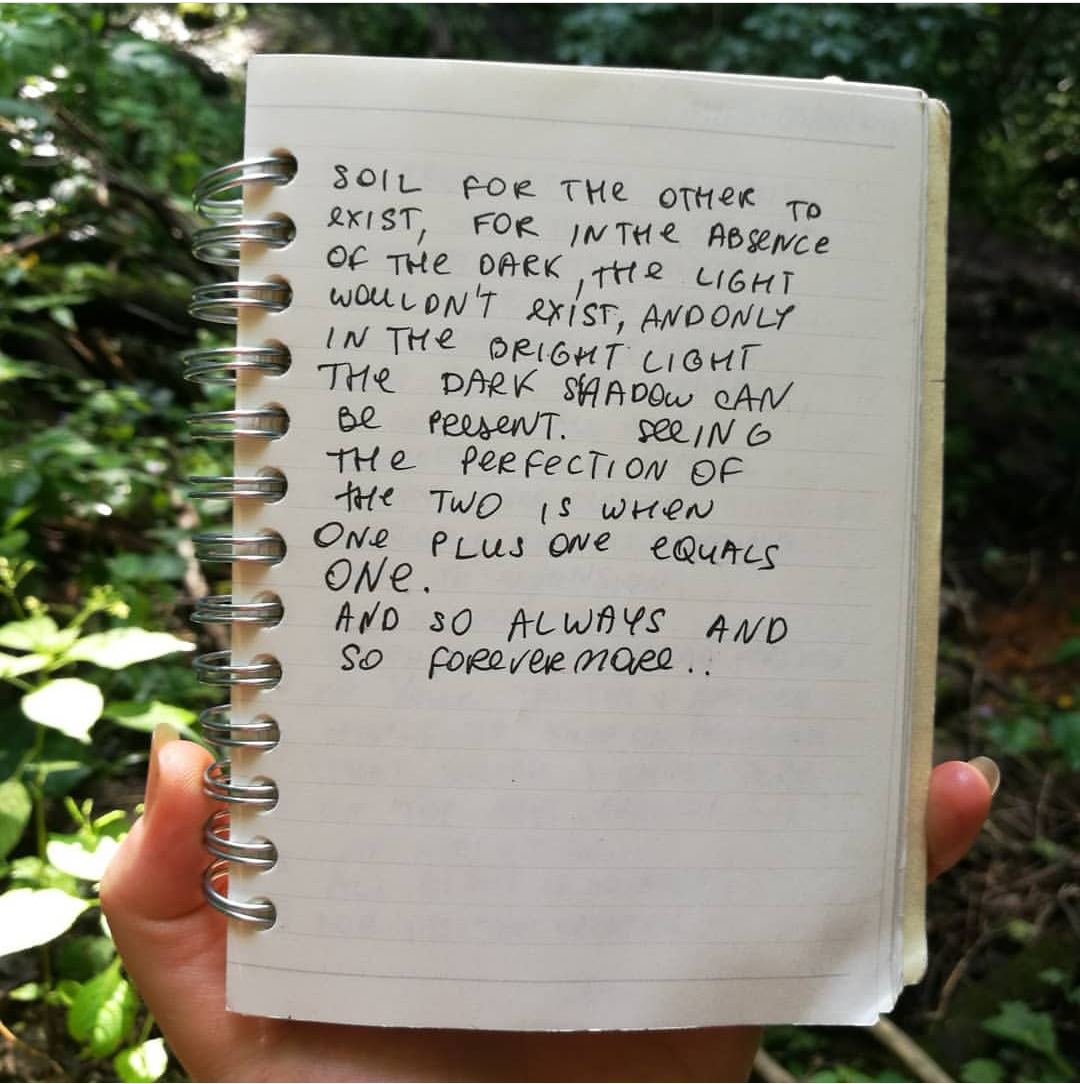 SOIL FOR THE OTHER TO
EXIST, FOR IN THE ABSENCE
OF THE DARK, THE LIGHT
WOULDN'T EXIST, AND ONLY
IN THE BRIGHT LIGHT
THE DARK SHADOW CAN
BE PRESENT. SEEING
THE PERFECTION OF
THE TWO IS WHEN
ONE PLUS ONE EQUALS
ONE.
AND SO ALWAYS AND
SO FOREVERMORE..